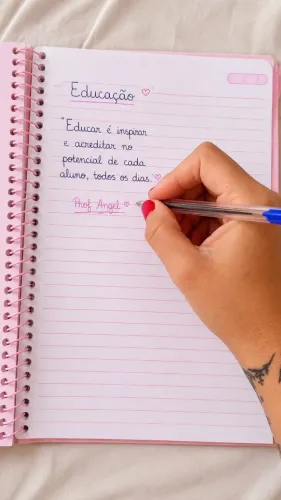 Educação ♡
"Educar é inspirar
e acreditar no
potencial de cada
aluno, todos os dias." ♡
Prof Angel ♡